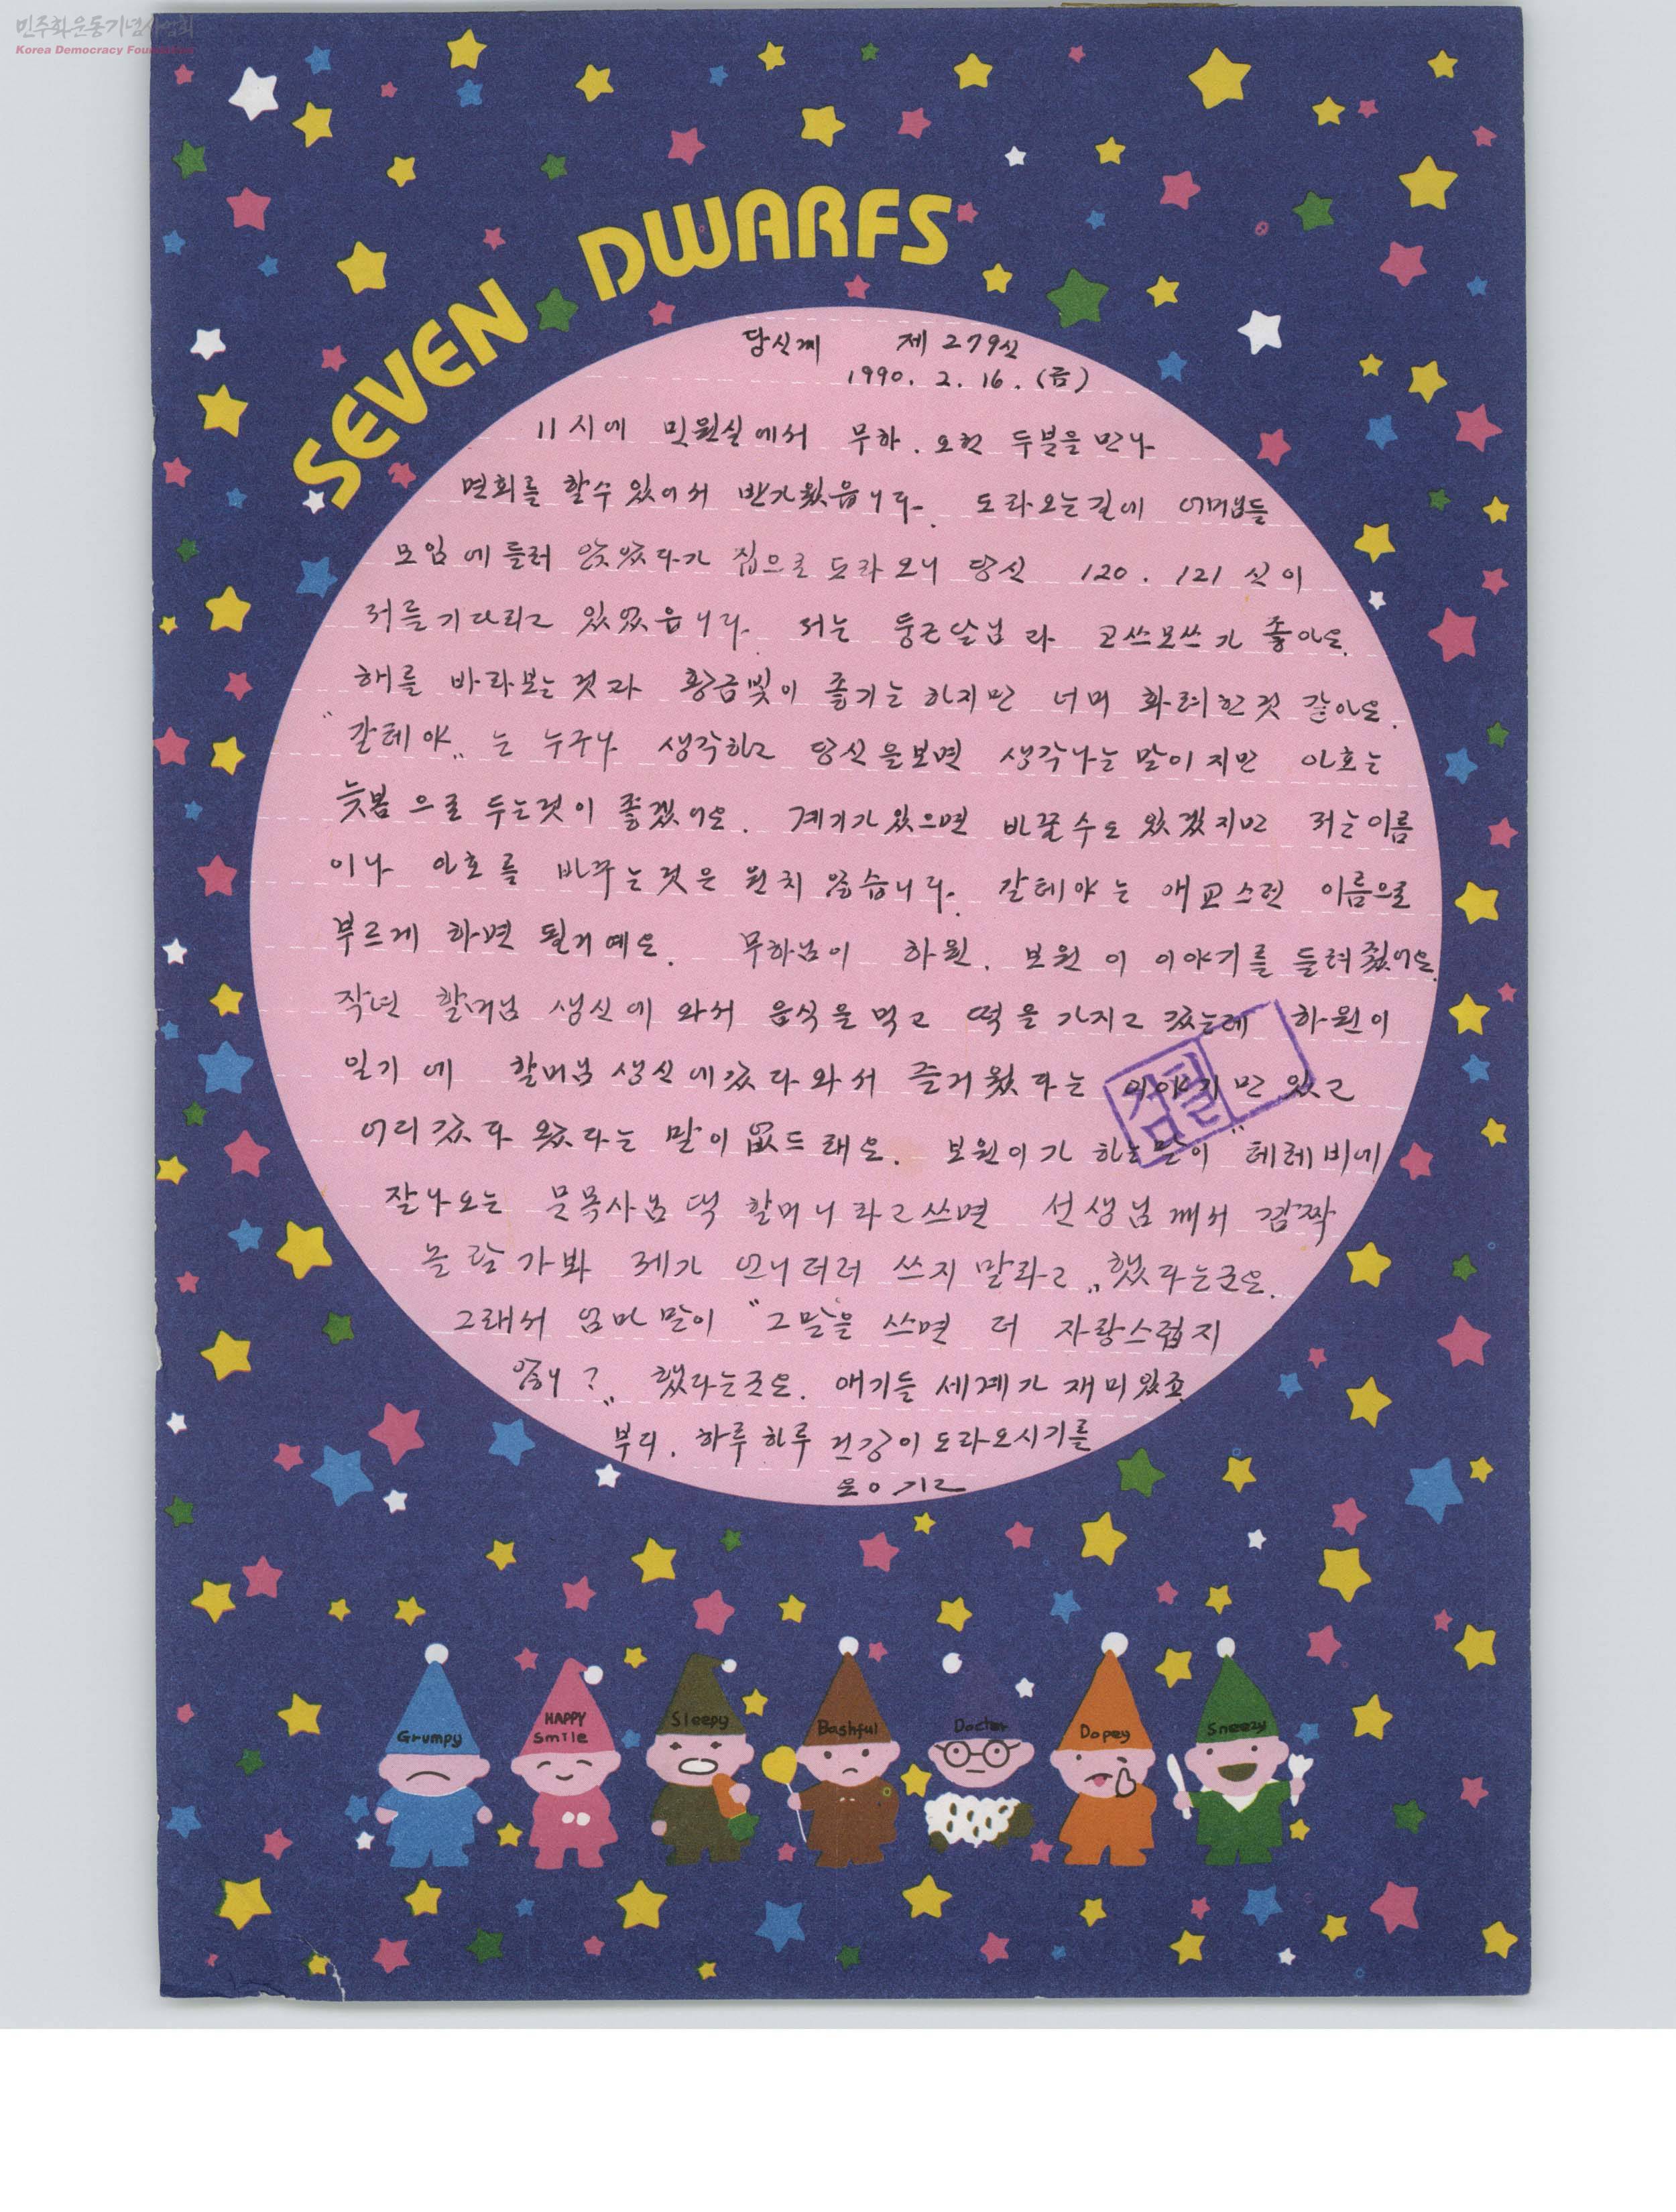 민주화운동기념사업회
Korea Democracy Foundation
SEVEN DWARFS
당신께 제 279신
1990. 2. 16. (금)
11시에 민원실에서 무하. 오헌 두분을 만나
면회를 할수 있어서 반가웠읍니다. 도라오는길에 어머님들
모임에 들러 앉았다가 집으로 도라오니 당신 120. 121 신이
저를기다리고 있었읍니다. 저는 둥근달님 라 코쓰모쓰가 좋아요.
해를 바라보는 것과 황금빛이 좋기는 하지만 너머 화려한것 같아요.
"갈테야" 는 누구나 생각하고 당신을보면 생각나는 말이지만 아호는
늦봄 으로 두는것이 좋겠어요. 계기가있으면 바꿀수도 있겠지만 저는이름
이나 아호를 바꾸는것은 원치 않습니다. 갈테야는 애교스런 이름으로
부르게 하면 될거예요. 무하님이 하원. 보원 이 이야기를 들려줬어요.
작년 할머님 생신에 와서 음식을 먹고 떡을 가지고 갔는데 하원이
일기에 할머님 생신에갔다와서 즐거웠다는 이야기만 있고
어디갔다 왔다는 말이 없드래요. 보원이가 하는말이 "테레비에
잘나오는 문목사님댁 할머니라고쓰면 선생님께서 깜짝
놀랄가봐 제가 언니더러 쓰지말라고" 했다는군요.
그래서 엄마말이 "그말을 쓰면 더 자랑스럽지
않니?" 했다는군요. 애기들 세계가 재미있죠.
부디. 하루하루 건강이도라오시기를
용길
검열
Grumpy
HAPPY
Smile
Sleepy
Bashful
Docter
Dopey
Sneezy